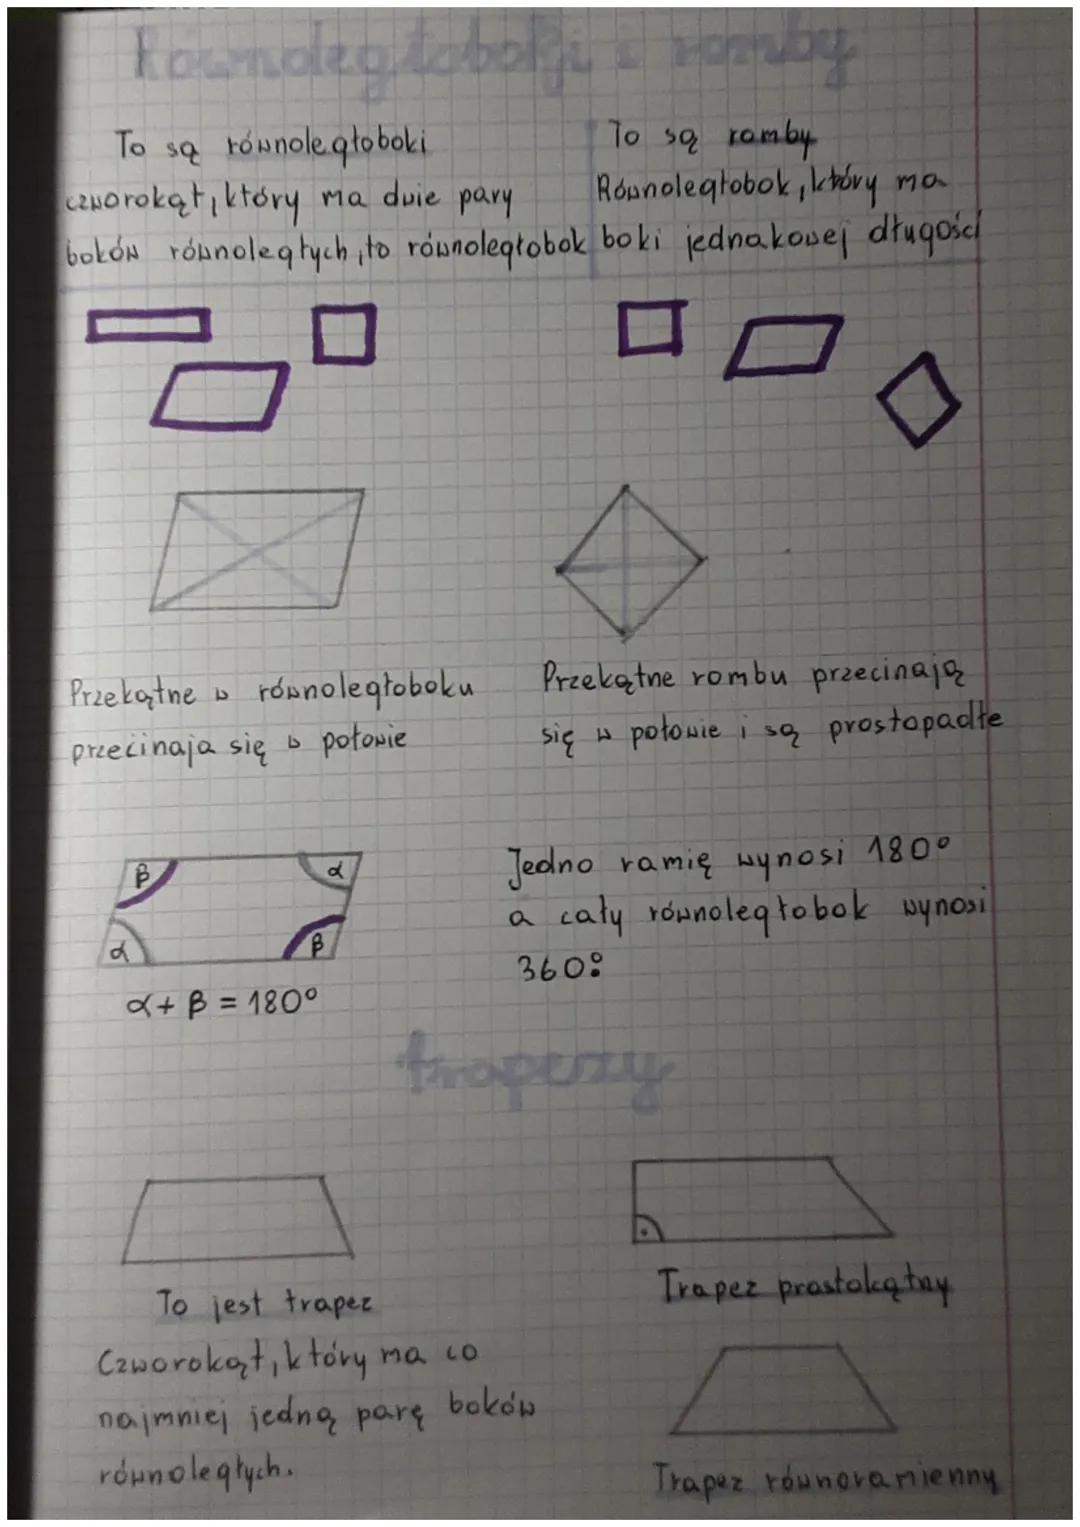 Równoległoboki i romby
To są równoległoboki
czworokąt, który ma dwie pary
boków równoległych, to równoległobok
To są romby
Równoległobok, który ma
boki jednakowej długości
Przekątne w równoległoboku
przecinaja się w połowie
Przekątne rombu przecinają
się w połowie i są prostopadłe
β α
α β
α + β = 180°
Jedno ramię wynosi 180°
a cały równoległobok wynosi
360°
trapezy
To jest trapez
Czworokąt, który ma co
najmniej jedną parę boków
równoległych.
Trapez prostokątny
Trapez równoramienny